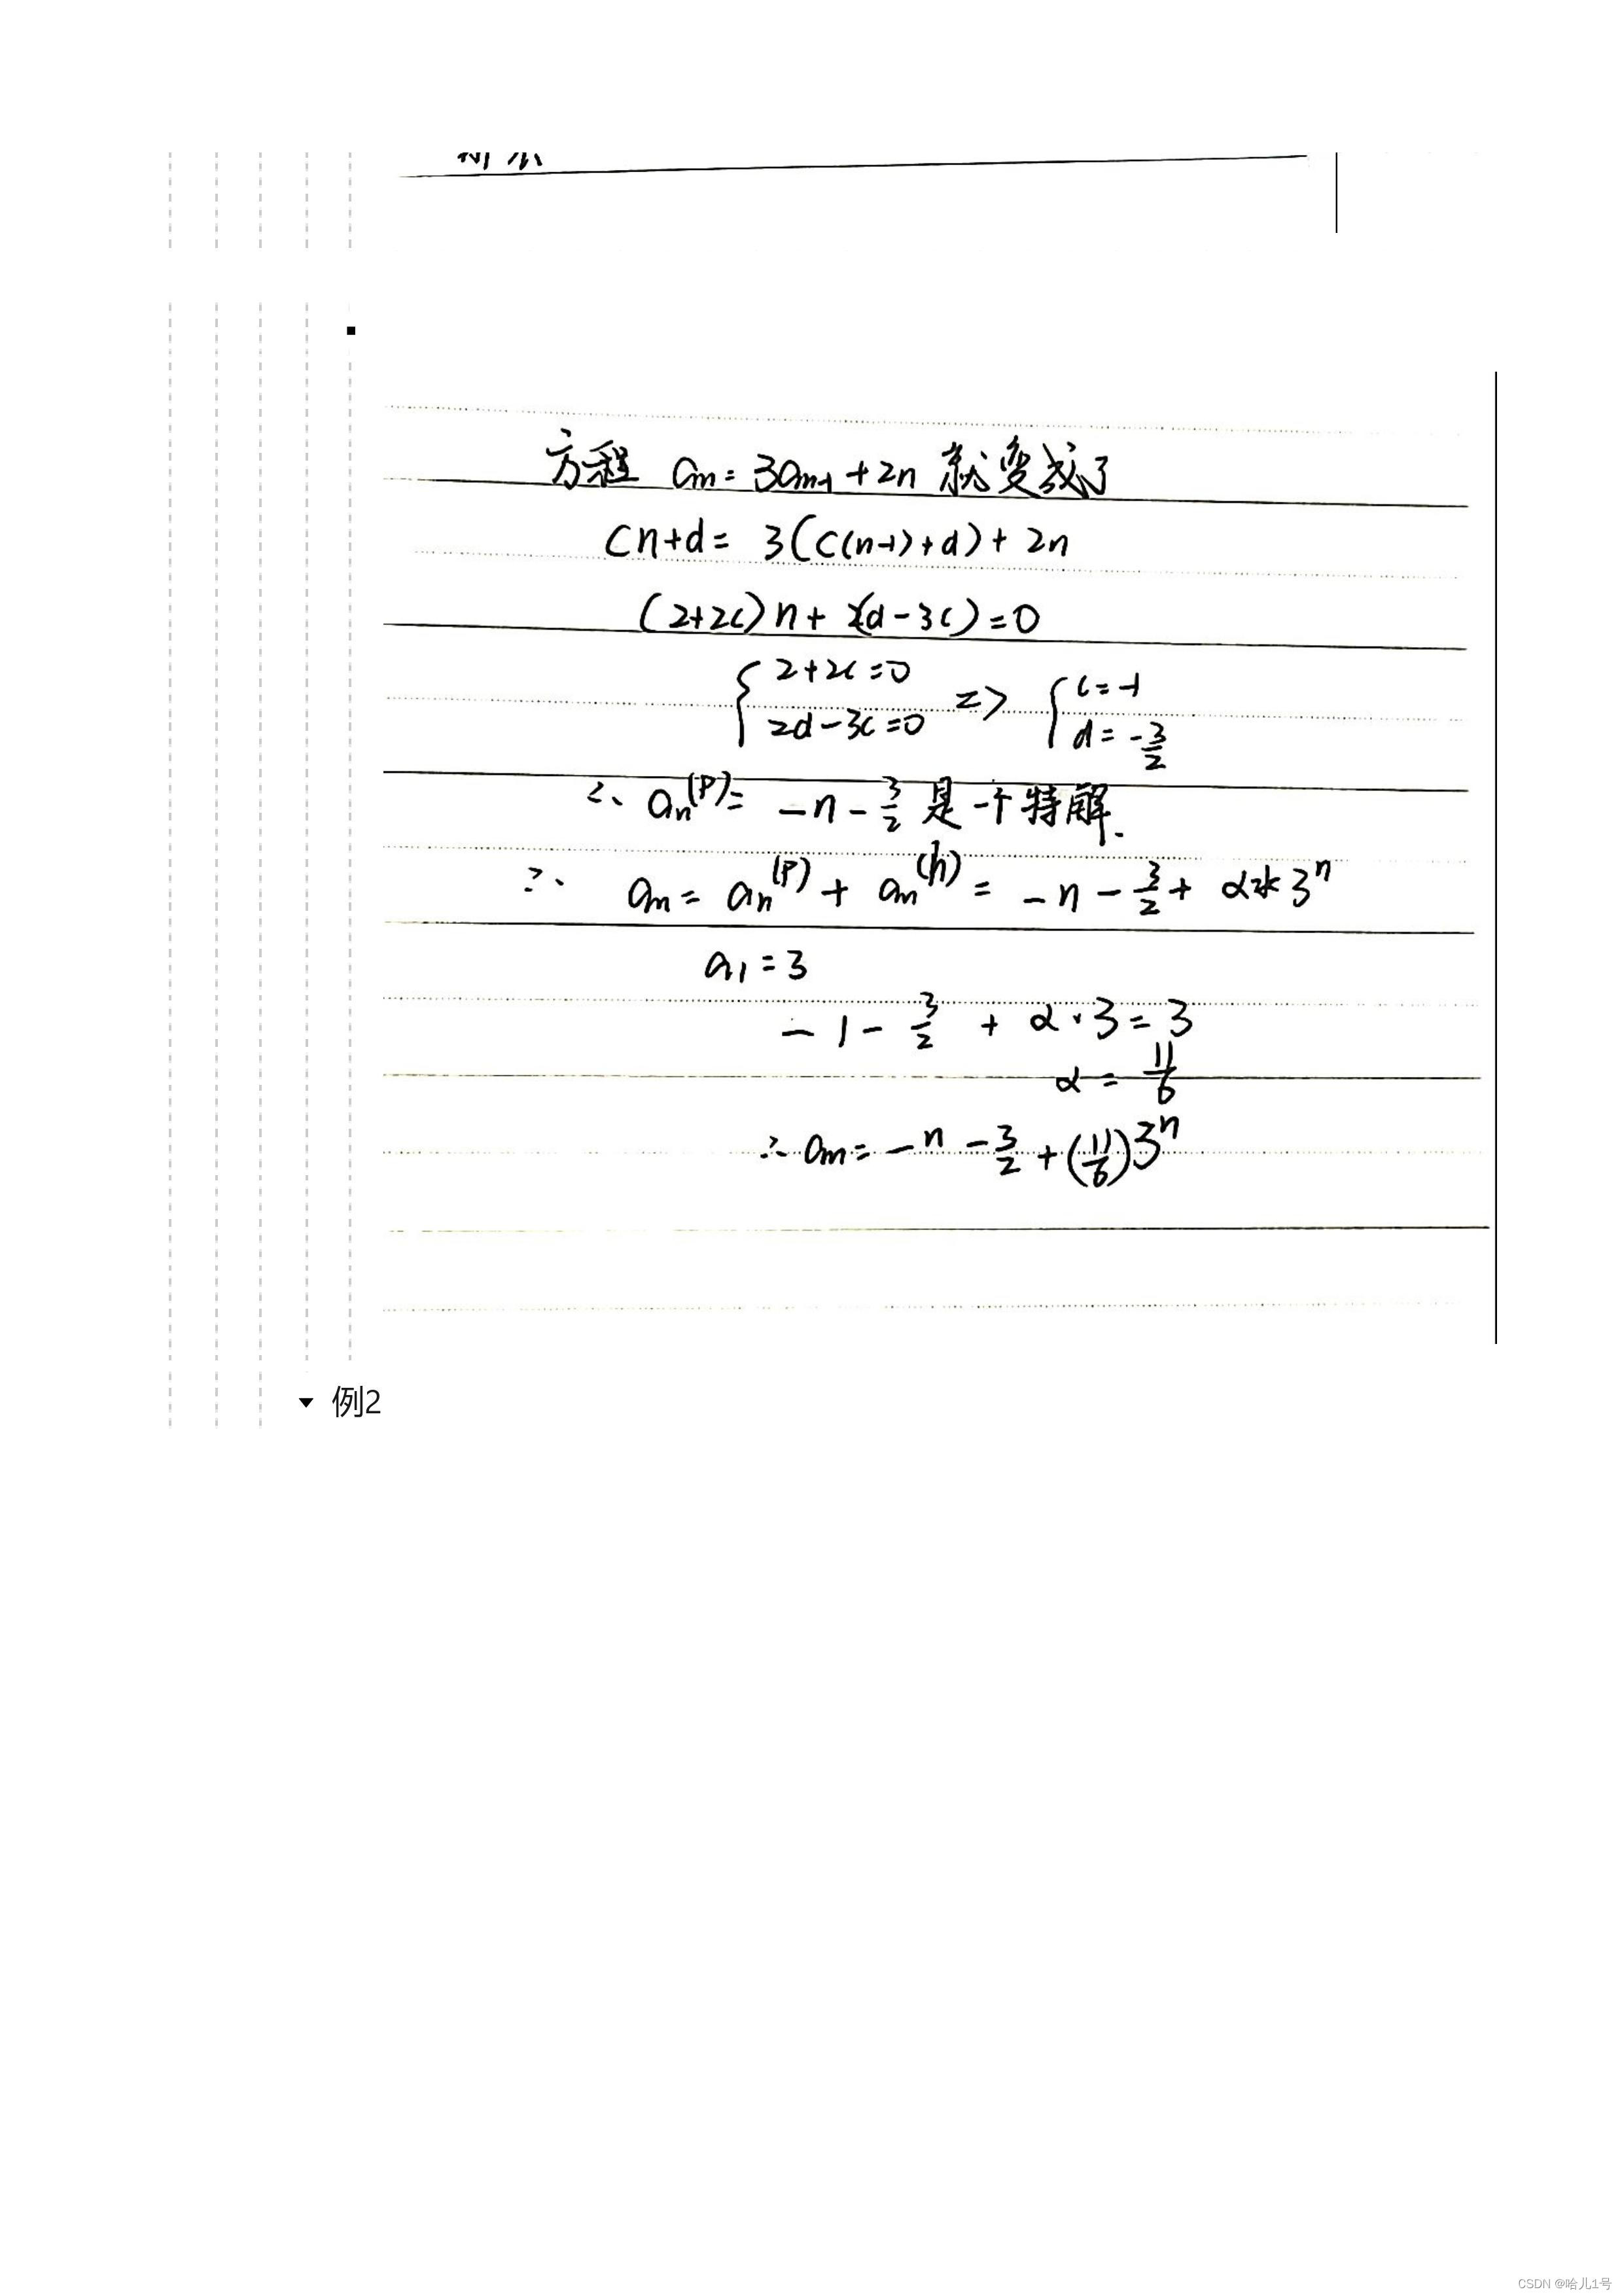 方程 an = 3an-1 + 2n 就变成了
cn+d = 3(c(n-1)+d) + 2n
(2+2c)n + (2d-3c) = 0
{ 2+2c=0 => { c=-1
2d-3c=0 d=-3/2
∴ an^(p) = -n - 3/2 是一个特解.
∴ an = an^(p) + an^(h) = -n - 3/2 + α * 3^n
a1 = 3
-1 - 3/2 + α·3 = 3
α = 11/6
∴ an = -n - 3/2 + (11/6)3^n
例2
CSDN @哈儿1号